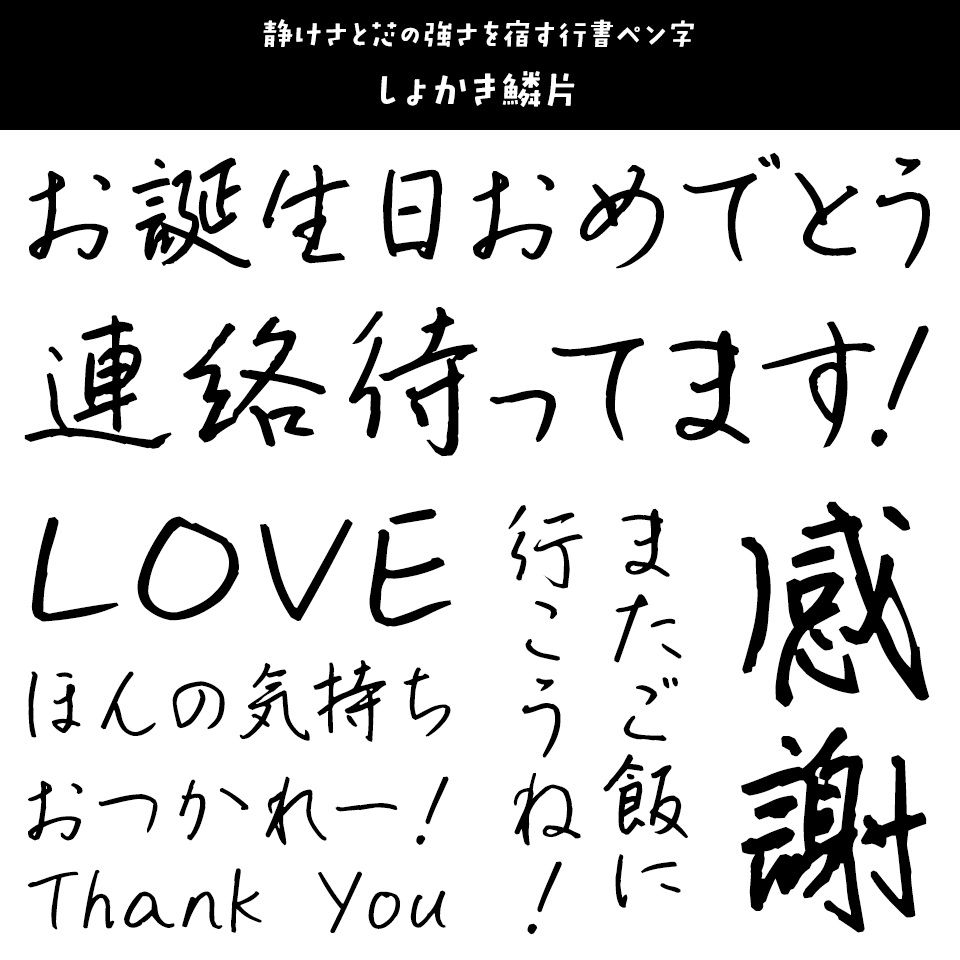 静けさと芯の強さを宿す行書ペン字
しょかき鱗片
お誕生日おめでとう
連絡待ってます!
LOVE
ほんの気持ち
おつかれー!
Thank You
またご飯に
行こうね!
感謝